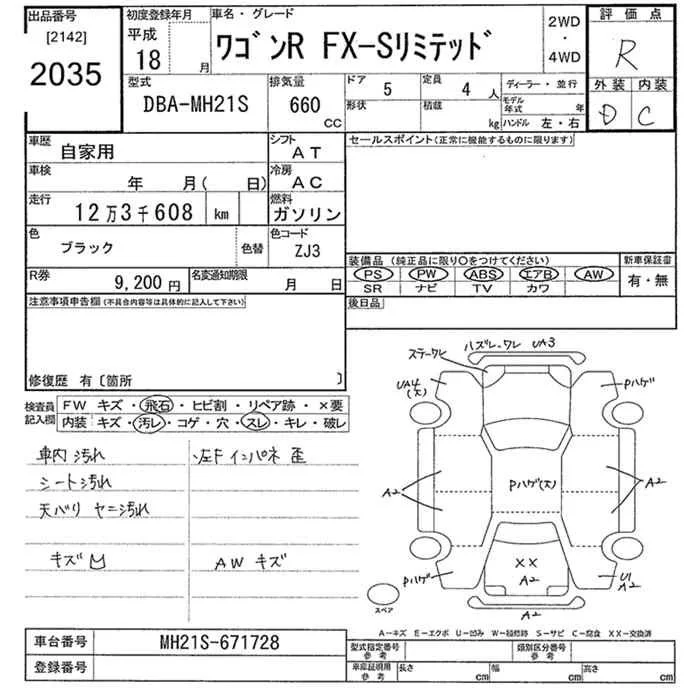 出品番号 初度登録年月 車名・グレード 2WD・4WD 評価点
[2142] 平成
2035 18 月 ワゴンR FX-Sリミテッド R
型式 排気量 ドア 定員 ディーラー・並行 外装 内装
DBA-MH21S 660 CC 5 4 人 モデル年式 年 D C
形状 積載 kg ハンドル 左・右
車歴 自家用 シフト AT セールスポイント(正常に機能するものに限ります)
車検 年 月( 日) 冷房 AC
走行 12万3千608 km 燃料 ガソリン
色 ブラック 色替 色コード ZJ3
装備品 (純正品に限り○をつけてください) 新車保証書
R券 9,200 円 名変通知期限 月 日 PS PW ABS エアB AW 有・無
SR ナビ TV カワ
注意事項申告欄(不具合内容等は具体的に記入して下さい) 後日品
修復歴 有〔箇所 〕
検査員記入欄 FW キズ・飛石・ヒビ割・リペア跡・×要
内装 キズ・汚レ・コゲ・穴・スレ・キレ・破レ
車内汚れ 左Fインパネ歪
シート汚れ
天バリ ヤニ汚れ
キズM AW キズ
ステーワレ ハズレ-ワレ UA3
UA4(大) Pハゲ
A2 Pハゲ(大) A2
Pハゲ XX A2 U1 A2
スペア A2
A-キズ E-エクボ U-凹み W-補修跡 S-サビ C-腐食 XX-交換済
車台番号 MH21S-671728 型式指定番号 参考 類別区分番号 参考
登録番号 車庫証明用 参考 長さ cm 幅 cm 高さ cm